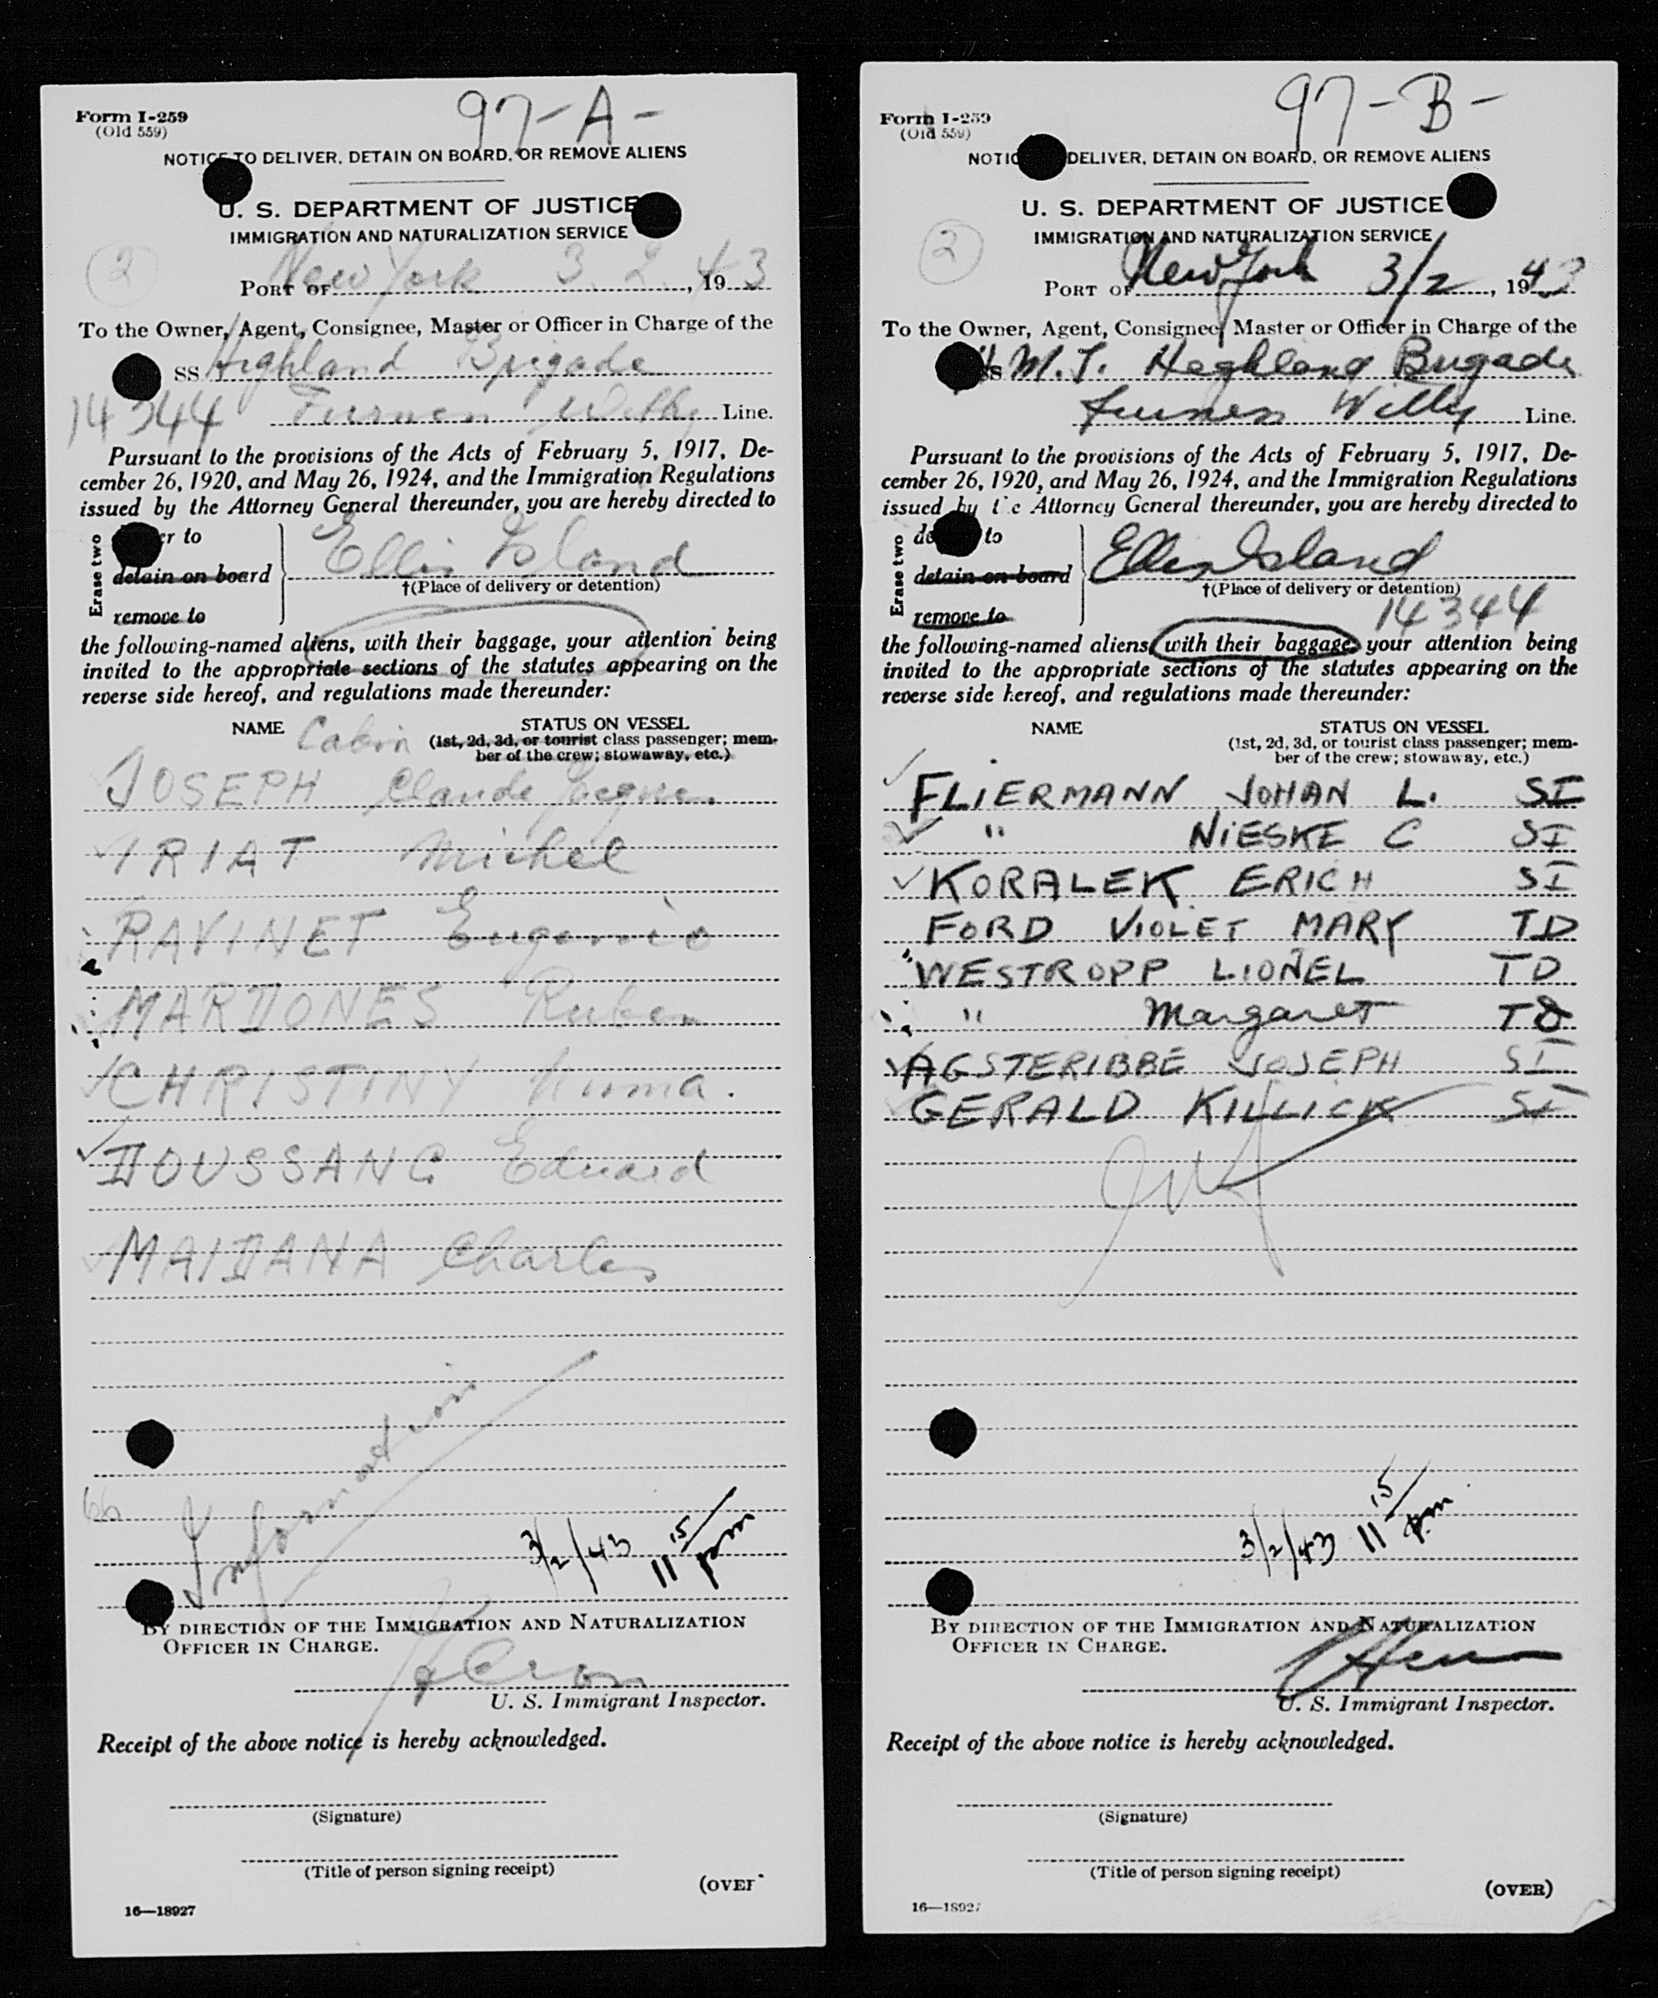 97-A-
Form I-259
(Old 559)
NOTICE TO DELIVER, DETAIN ON BOARD, OR REMOVE ALIENS
U. S. DEPARTMENT OF JUSTICE
IMMIGRATION AND NATURALIZATION SERVICE
2
PORT OF New York 3. 2, 1943
To the Owner, Agent, Consignee, Master or Officer in Charge of the
SS Highland Brigade
14344 Furness Withy Line.
Pursuant to the provisions of the Acts of February 5, 1917, De-
cember 26, 1920, and May 26, 1924, and the Immigration Regulations
issued by the Attorney General thereunder, you are hereby directed to
Erase two
to
detain on board
remove to
Ellis Island
†(Place of delivery or detention)
the following-named aliens, with their baggage, your attention being
invited to the appropriate sections of the statutes appearing on the
reverse side hereof, and regulations made thereunder:
NAME Cabin STATUS ON VESSEL
(1st, 2d, 3d, or tourist class passenger; mem-
ber of the crew; stowaway, etc.)
JOSEPH Claude
IRIAT Michel
RAVINET Eugenio
MARDONES Ruben
CHRISTINY Numa.
DOUSSANG Eduard
MAIDANA Charles
Information
3/2/43 11 15/pm
BY DIRECTION OF THE IMMIGRATION AND NATURALIZATION
OFFICER IN CHARGE.
U. S. Immigrant Inspector.
Receipt of the above notice is hereby acknowledged.
(Signature)
(Title of person signing receipt)
(OVER
16—18927
97-B-
Form I-259
(Old 559)
DELIVER, DETAIN ON BOARD, OR REMOVE ALIENS
U. S. DEPARTMENT OF JUSTICE
IMMIGRATION AND NATURALIZATION SERVICE
2
PORT OF New York 3/2, 1943
To the Owner, Agent, Consignee, Master or Officer in Charge of the
M.T. Highland Brigade
Furness Withy Line.
Pursuant to the provisions of the Acts of February 5, 1917, De-
cember 26, 1920, and May 26, 1924, and the Immigration Regulations
issued by the Attorney General thereunder, you are hereby directed to
Erase two
to
detain on board
remove to
Ellis Island
†(Place of delivery or detention)
14344
the following-named aliens, with their baggage, your attention being
invited to the appropriate sections of the statutes appearing on the
reverse side hereof, and regulations made thereunder:
NAME STATUS ON VESSEL
(1st, 2d, 3d, or tourist class passenger; mem-
ber of the crew; stowaway, etc.)
FLIERMANN JOHAN L. SI
" NIESKE C SI
KORALEK ERICH SI
FORD VIOLET MARY TD
WESTROPP LIONEL TD
" Margaret TD
AGSTERIBBE JOSEPH SI
GERALD KILLICK SI
3/2/43 11 15/pm
BY DIRECTION OF THE IMMIGRATION AND NATURALIZATION
OFFICER IN CHARGE.
U. S. Immigrant Inspector.
Receipt of the above notice is hereby acknowledged.
(Signature)
(Title of person signing receipt)
(OVER)
16—18927